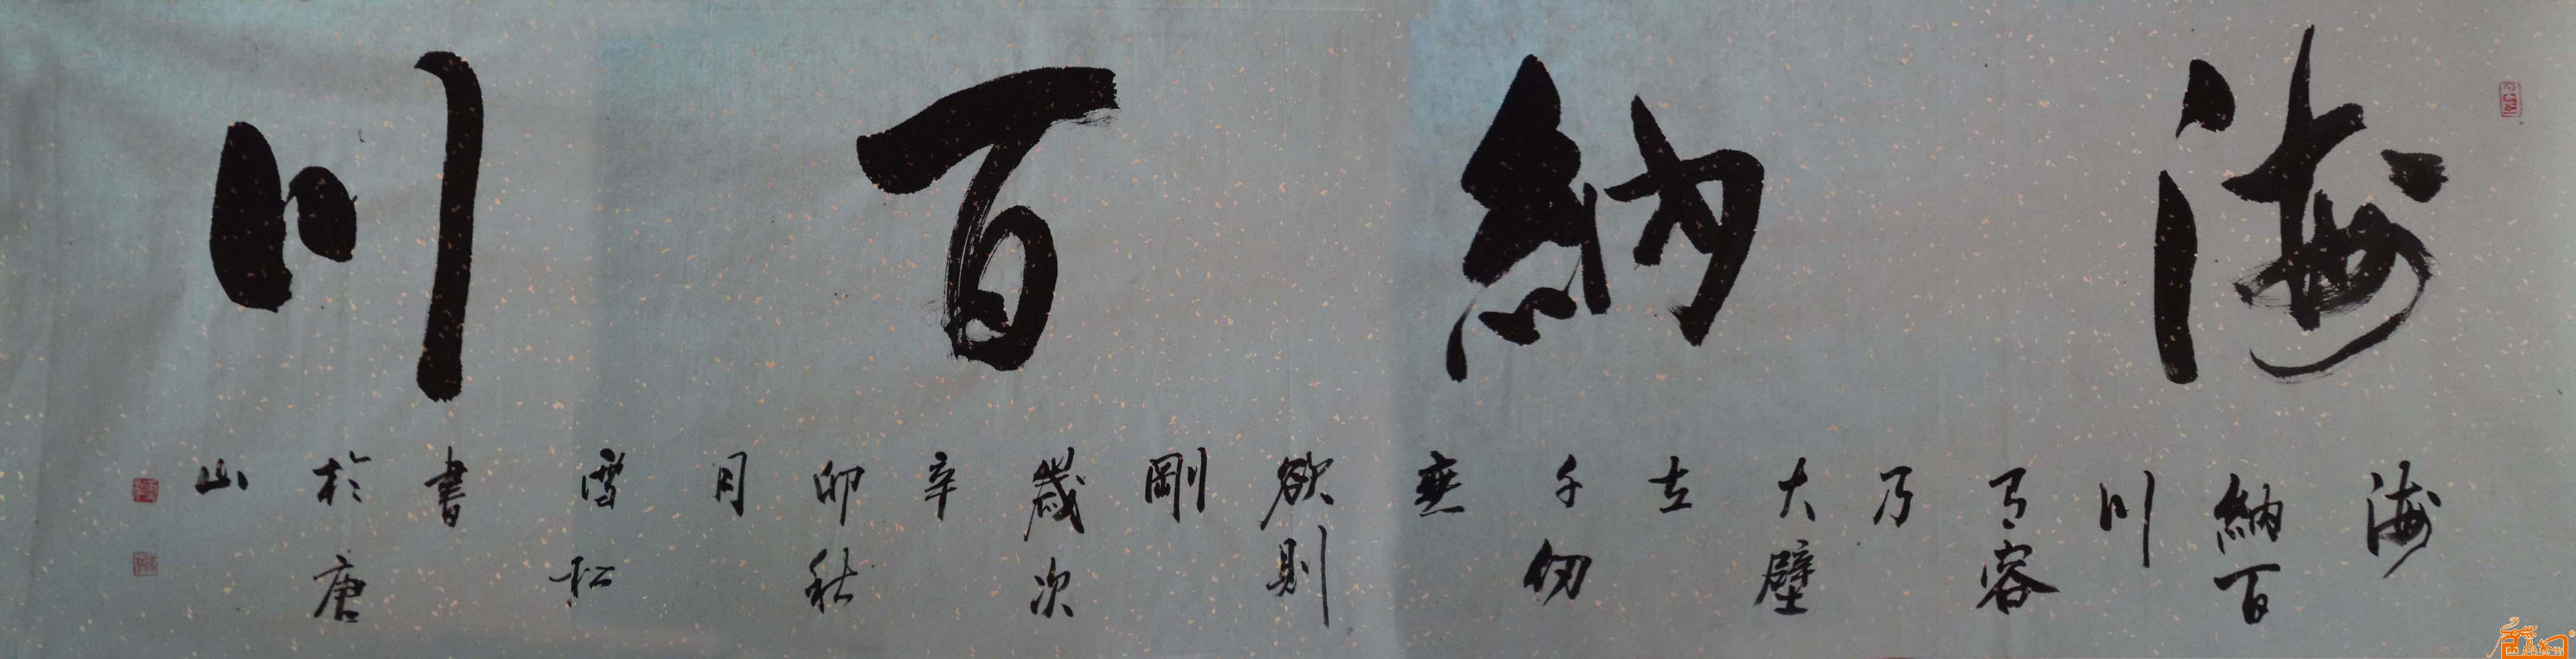 海納百川
海
納百
川
有容
乃
大壁
立
千仞
無
欲則
剛
歲次
辛
卯秋
月
雪松
書
於唐
山